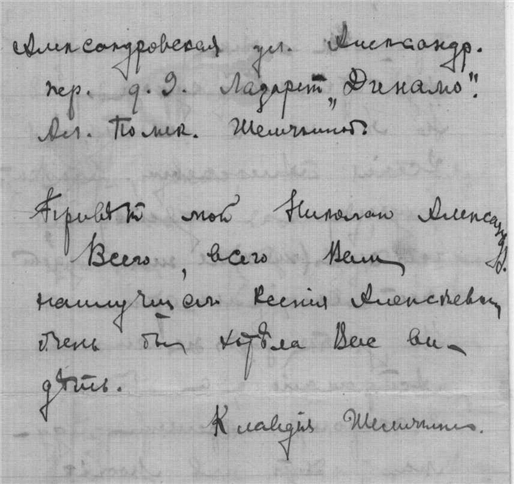 Александровская ул. Александр.
пер. д. 9. Лазарет „Динамо".
Ал. Полик.
Привѣт мой Николаю Александр.
Всего, всего Вам
наилучшаго Ксенія Алексѣевна
очень бы хотѣла Вас ви-
дѣть.
Клавдія